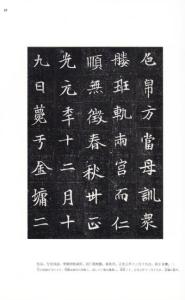 色帛方當母訓衆
媵班軌兩宮而仁
順無徵春秋卅正
光元年十二月十
九日薨于金墉二